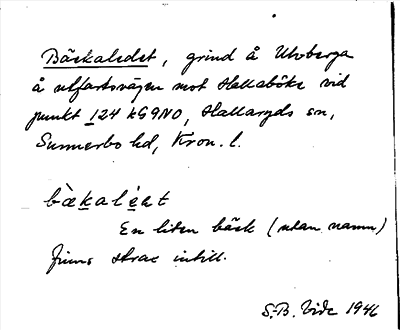 Bäckaledet, grind å Ulvberga
å utfartsvägen mot Hallaböke vid
punkt 124 kG9NO, Hallaryds sn,
Sunnerbo hd, Kron. l.
bæ̀kaléat
En liten bäck (utan namn)
finns strax intill.
S.-B. Vide 1946